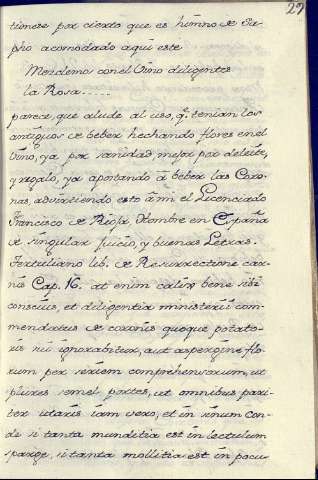 29
tienese por cierto que es himno de Sa-
pho acomodado aqui este
Mezclemos con el Vino diligentes
la Rosa.....
parece, que alude al uso, q.e tenian los
antiguos de beber hechando flores en el
Vino, ya por vanidad mejor por deleite,
y regalo, ya apostando â beber las Coro-
nas, advirtiendo esto â mi el Licenciado
Francisco de Rioja Hombre en España
de singular Juicio, y buenas Letras.
Tertuliano lib. de Resurrectione car-
nis Cap. 16. at enim calix bene sibi
conscius, et diligentia ministerii com-
mendatus de coronis quoque potato-
ris sui ignorabitur, aut aspergine flo-
rum per seriem comprehensorum, ut
plures semel portes, ut omnibus pari-
ter utaris iam vero, et in sinum con-
de si tanta munditia est in lectulum
sparge, si tanta mollitia est in pocu-